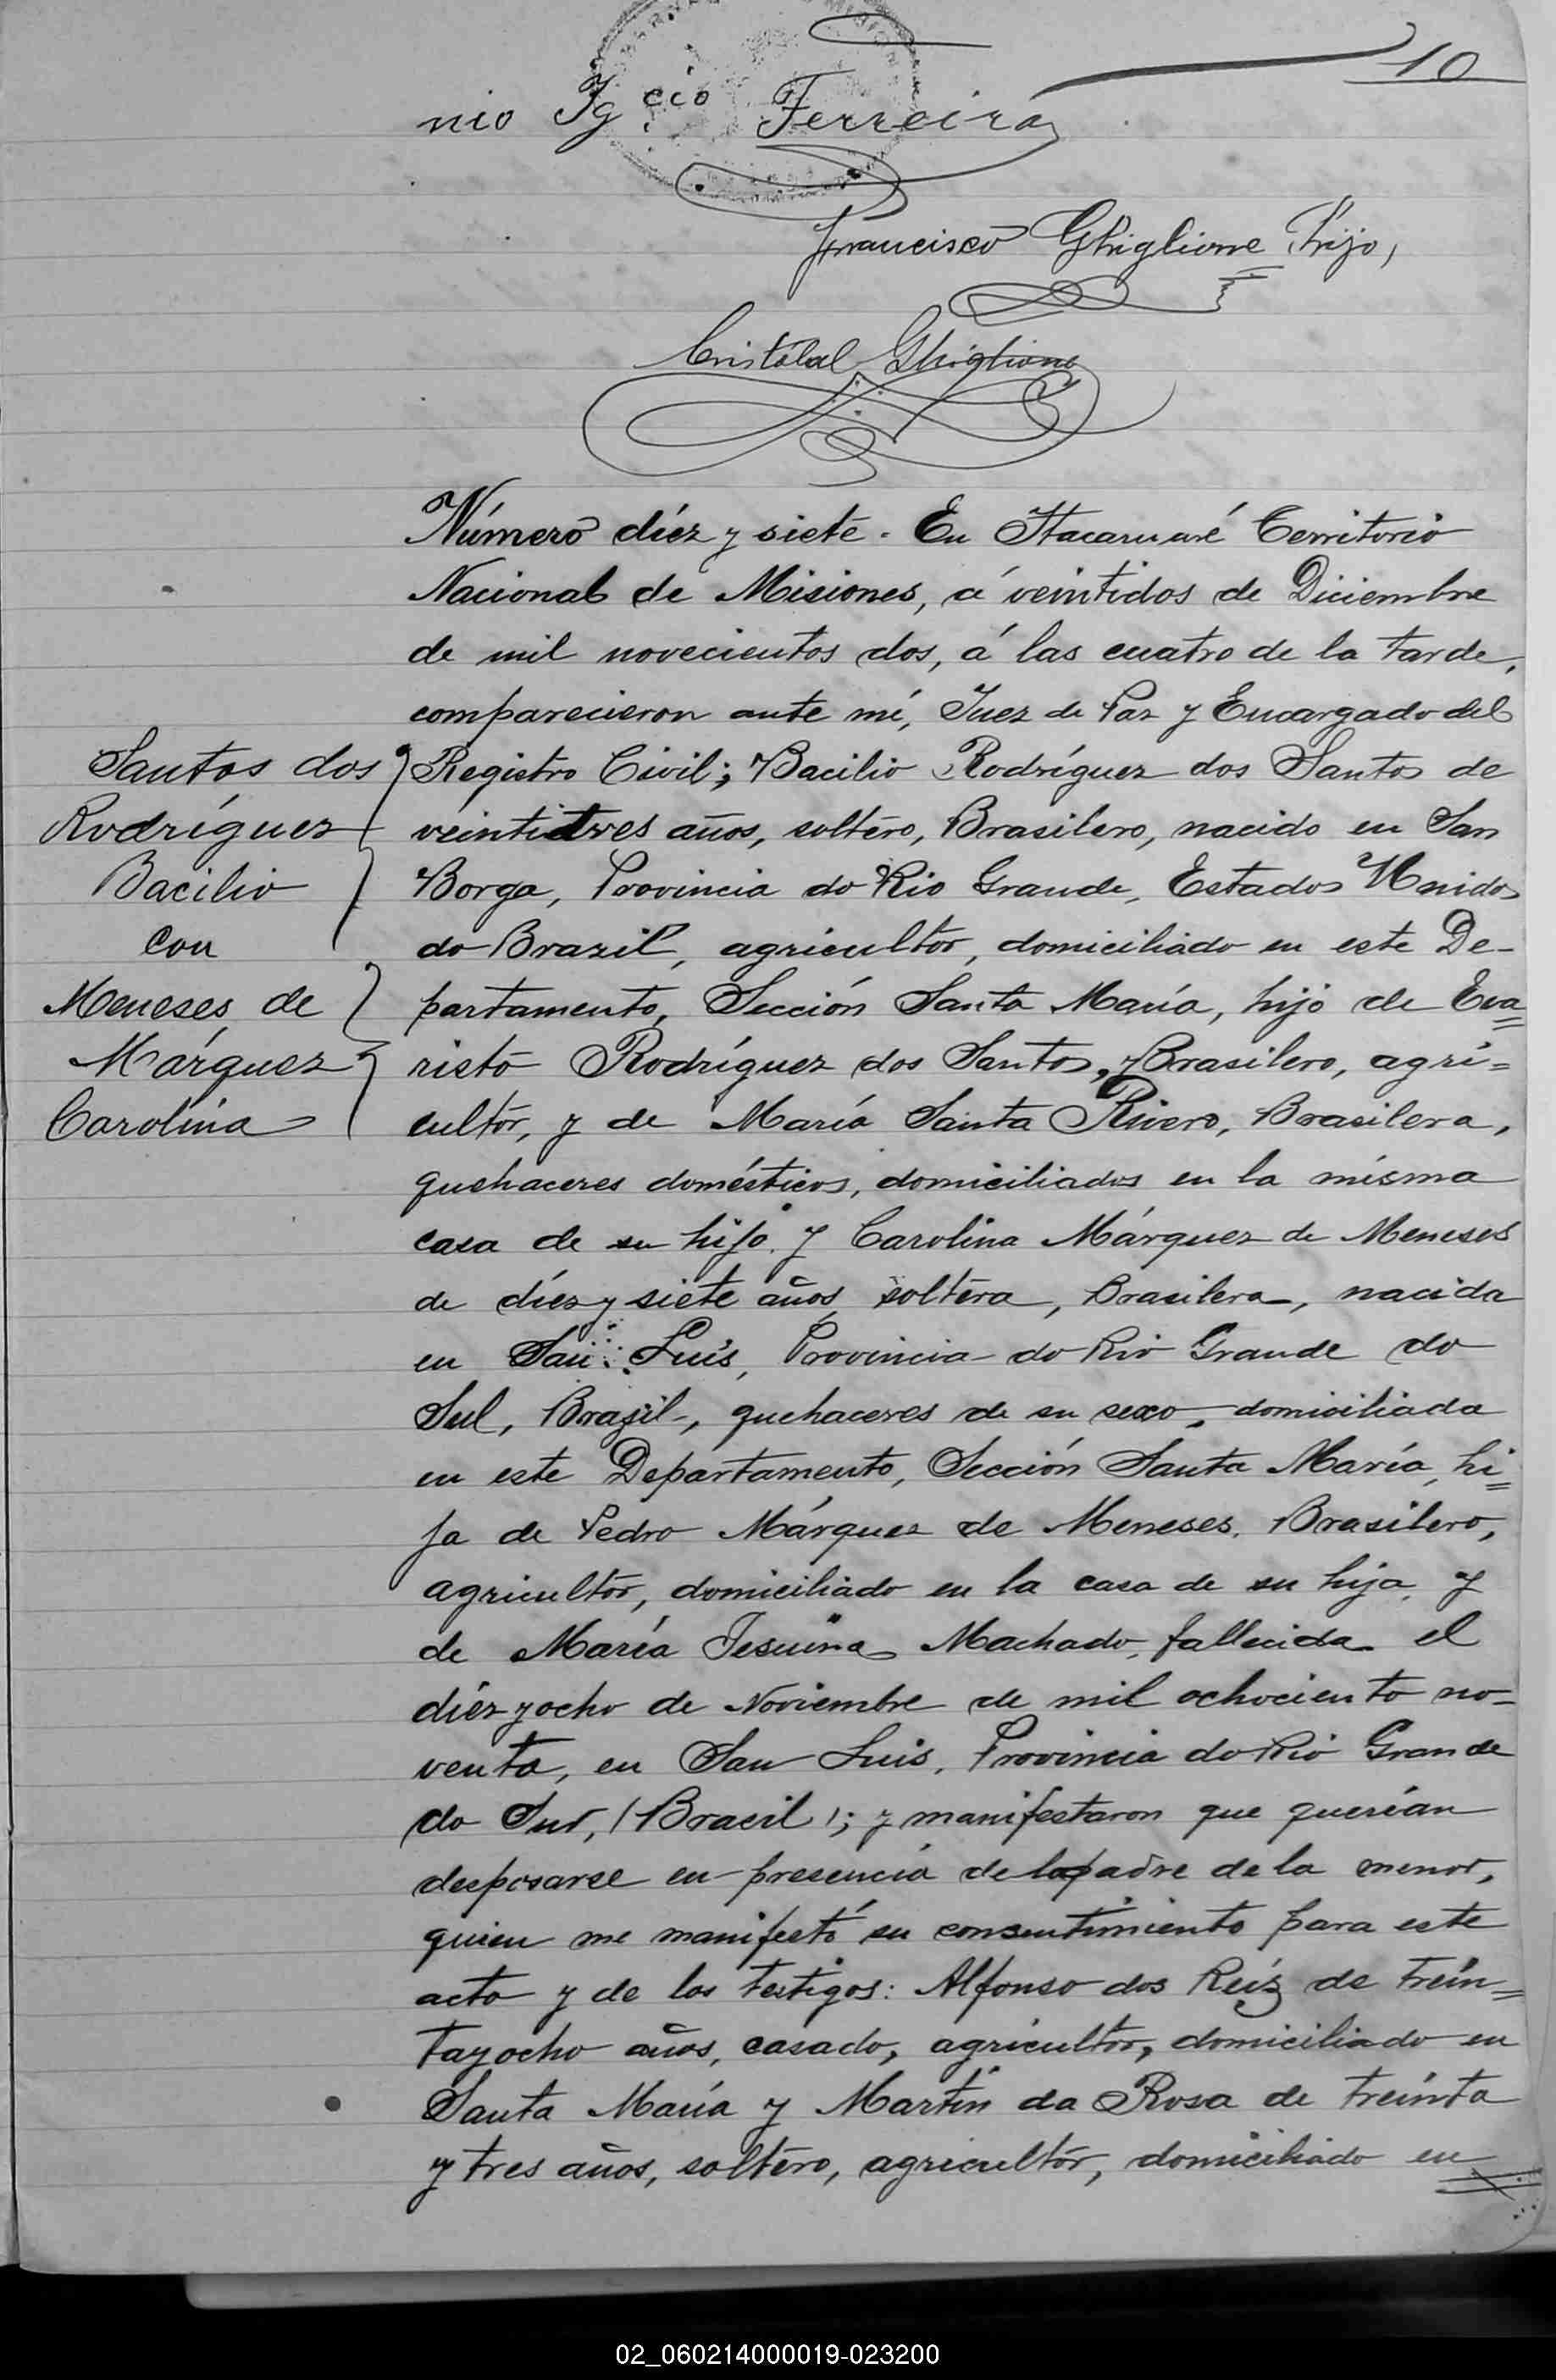 10
nio Ig.cio Ferreira
Francisco Ghiglione hijo,
Cristóbal Ghiglione
Número diez y siete. En Itacaruaré Territorio
Nacional de Misiones, á veintidos de Diciembre
de mil novecientos dos, á las cuatro de la tarde,
comparecieron ante mí, Juez de Paz y Encargado del
Registro Civil; Bacilio Rodríguez dos Santos de
veintitres años, soltero, Brasilero, nacido en San
Borga, Provincia do Rio Grande, Estados Unidos
do Brazil, agricultor, domiciliado en este De-
partamento, Sección Santa María, hijo de Eva=
risto Rodríguez dos Santos, Brasilero, agri=
cultor, y de María Santa Rivero, Brasilera,
quehaceres domésticos, domiciliados en la misma
casa de su hijo. Y Carolina Márquez de Meneses
de diez y siete años soltera, Brasilera, nacida
en San Luis, Provincia do Rio Grande do
Sul, Brazil, quehaceres de su sexo, domiciliada
en este Departamento, Sección Santa María, hi=
ja de Pedro Márquez de Meneses, Brasilero,
agricultor, domiciliado en la casa de su hija, y
de María Jesuina Machado, fallecida el
diez y ocho de Noviembre de mil ochociento no-
venta, en San Luis, Provincia do Rio Grande
do Sur, (Bracil); y manifestaron que querían
desposarse en presencia del padre de la menor,
quien me manifestó su consentimiento para este
acto y de los testigos: Alfonso dos Reiz de trein=
tayocho años, casado, agricultor, domiciliado en
Santa María y Martín da Rosa de treinta
y tres años, soltero, agricultor, domiciliado en
Santos dos
Rodríguez
Bacilio
con
Meneses de
Márquez
Carolina
02_060214000019-023200